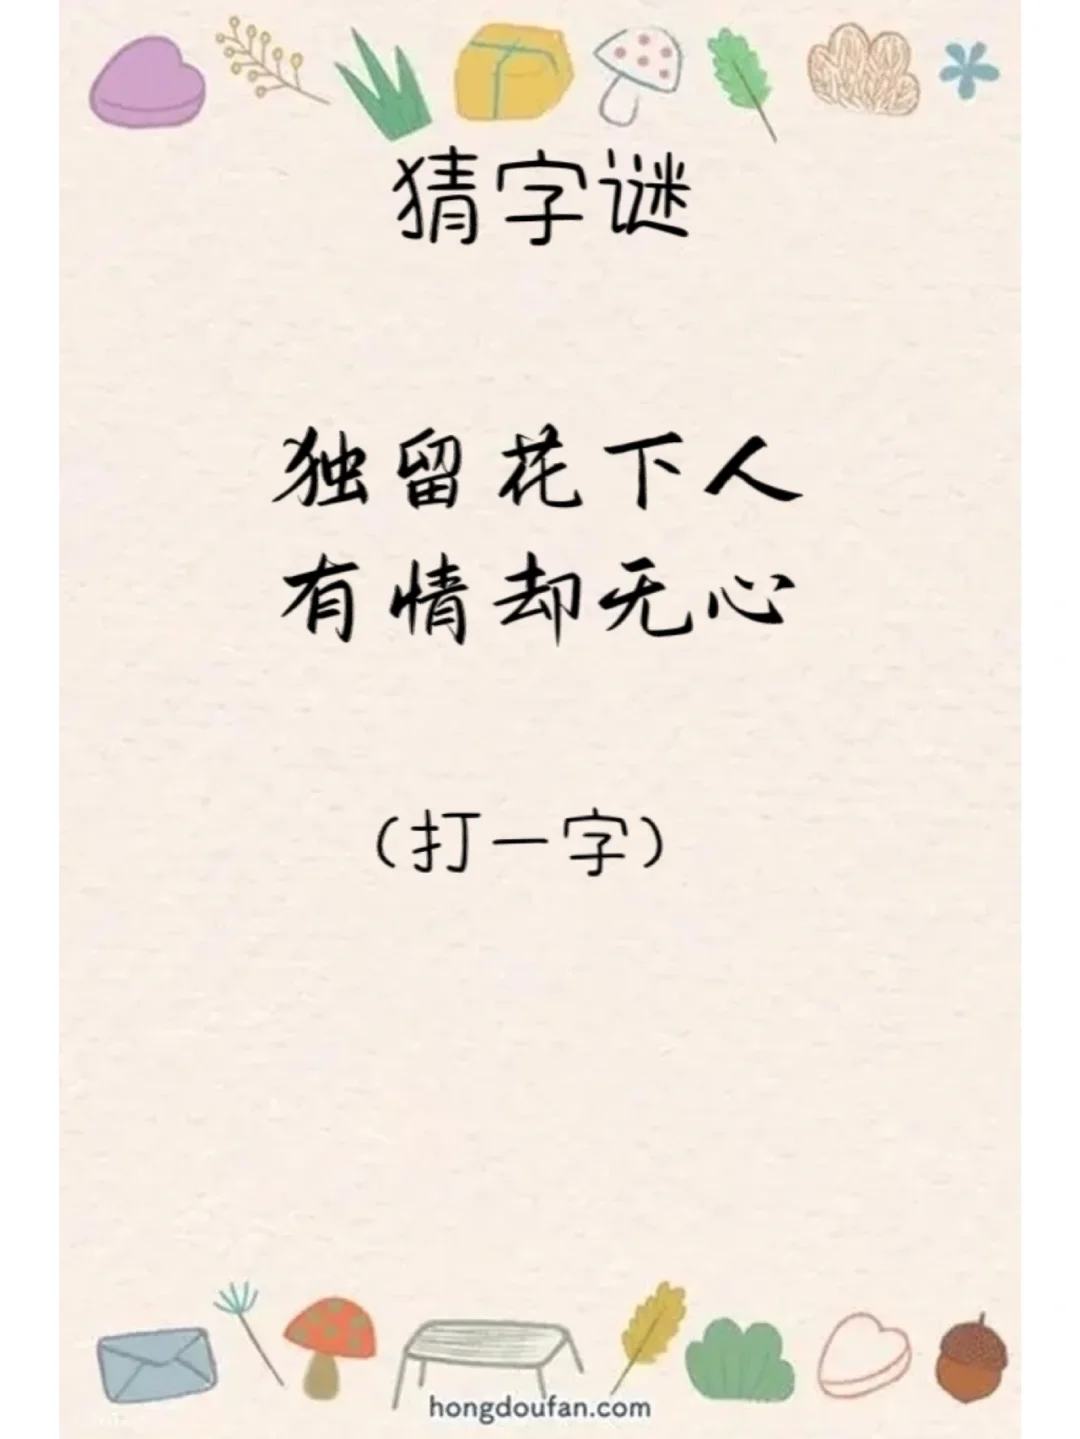 猜字谜
独留花下人
有情却无心
(打一字)
hongdoufan.com